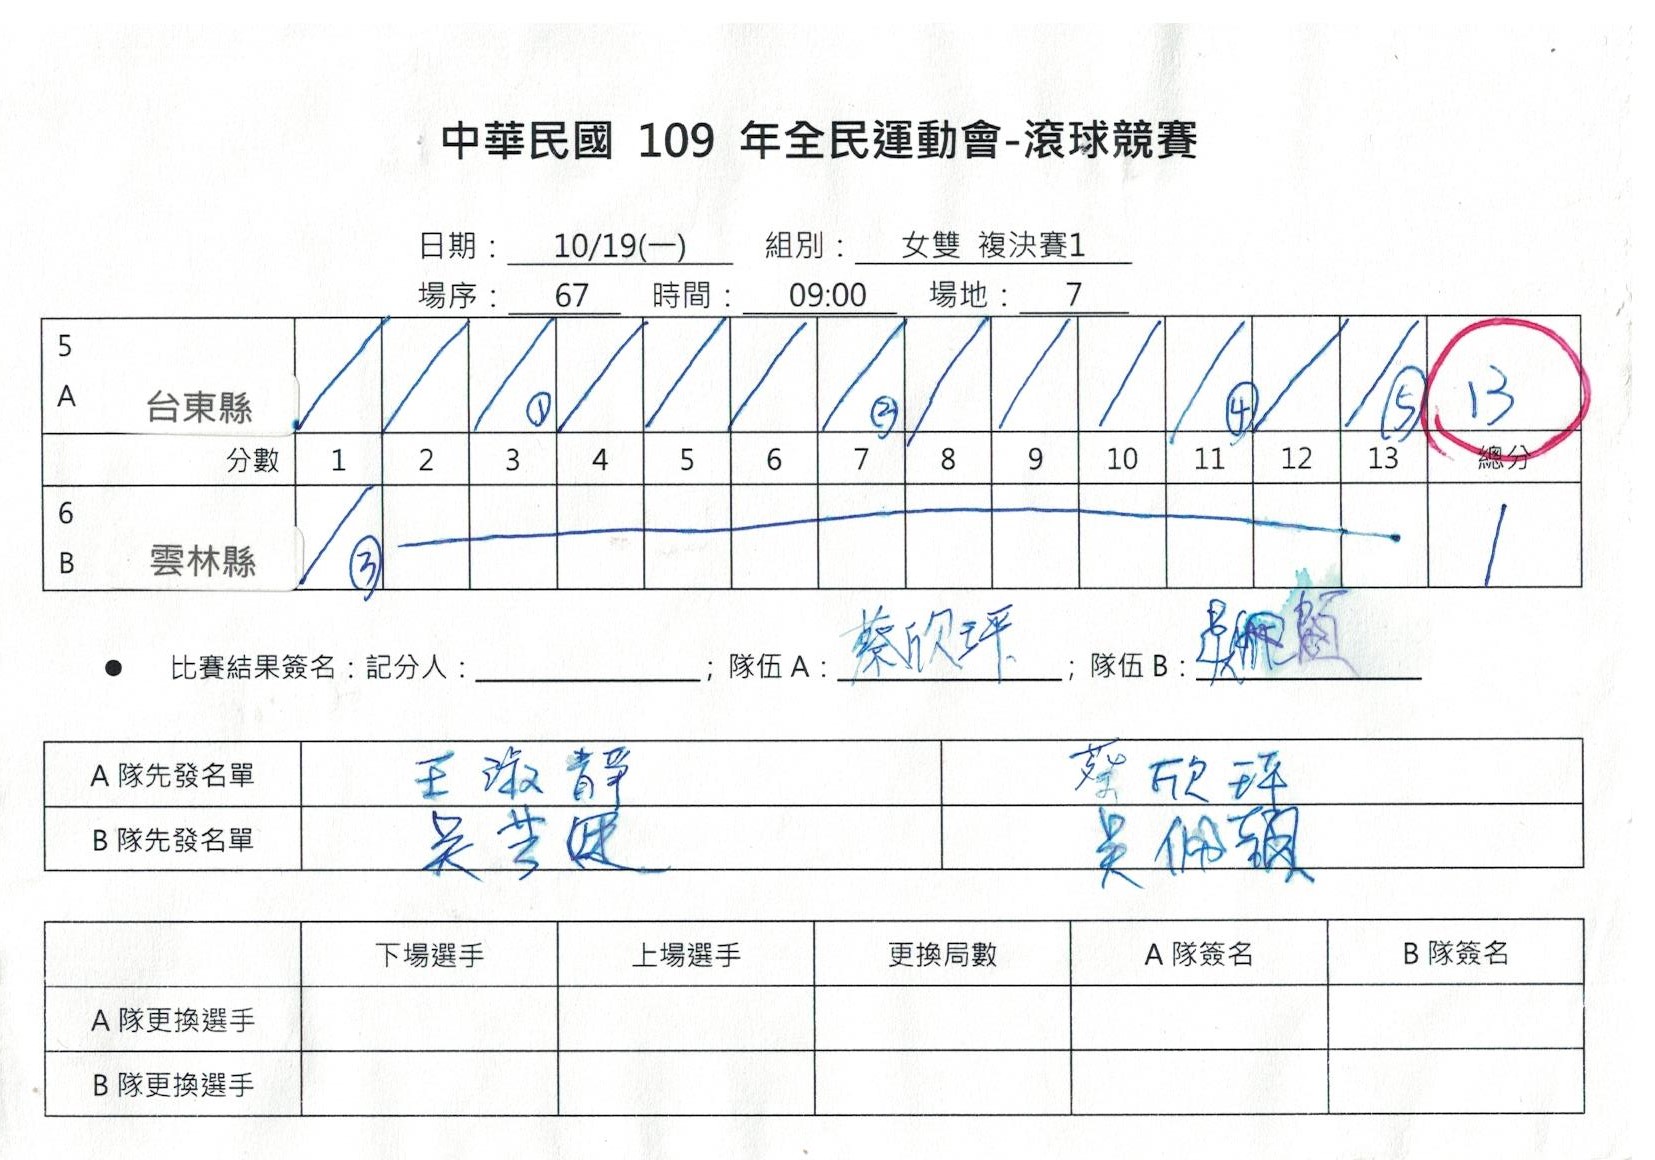 中華民國 109 年全民運動會-滾球競賽
日期： 10/19(一) 組別： 女雙 複決賽1
場序： 67 時間： 09:00 場地： 7
5
A 台東縣 ① ② ④ ⑤ 13
分數 1 2 3 4 5 6 7 8 9 10 11 12 13 總分
6
B 雲林縣 ③ 1
● 比賽結果簽名：記分人： ；隊伍 A： 蔡欣玶 ；隊伍 B： 吳佩
A 隊先發名單 王淑靜 蔡欣玶
B 隊先發名單 吳 吳佩穎
下場選手 上場選手 更換局數 A 隊簽名 B 隊簽名
A 隊更換選手
B 隊更換選手